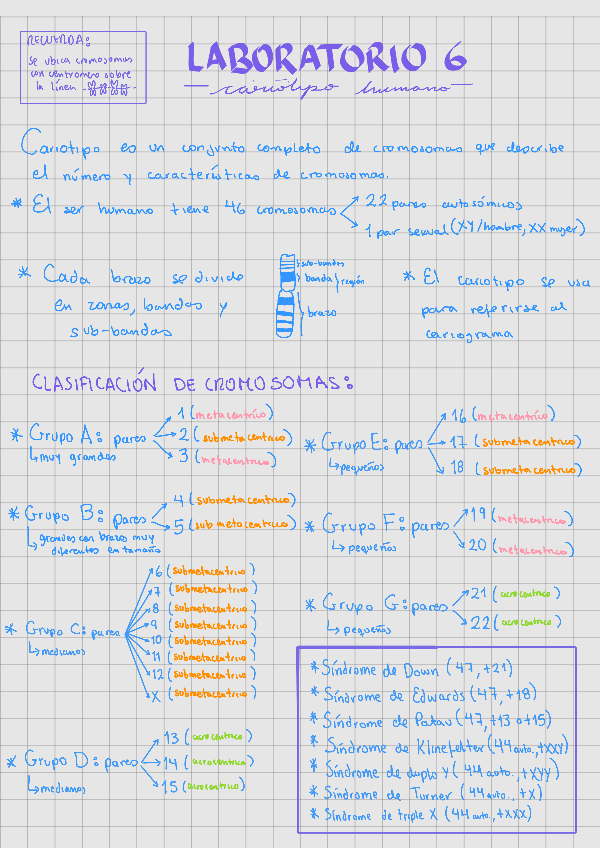 RECUERDA:
se ubica cromosomas
con centromero sobre
la línea
LABORATORIO 6
cariotipo humano
Cariotipo es un conjunto completo de cromosomas que describe
el número y características de cromosomas.
* El ser humano tiene 46 cromosomas
22 pares autosómicos
1 par sexual (XY/hombre, XX mujer)
* Cada brazo se divide
en zonas, bandas y
sub-bandas
sub-bandas
banda
región
brazo
* El cariotipo se usa
para referirse al
cariograma
CLASIFICACIÓN DE CROMOSOMAS:
* Grupo A: pares
muy grandes
1 (metacentrico)
2 (submetacentrico)
3 (metacentrico)
* Grupo B: pares
grandes con brazo muy
diferentes en tamaño
4 (submetacentrico)
5 (submetacentrico)
* Grupo C: pares
medianos
6 (submetacentrico)
7 (submetacentrico)
8 (submetacentrico)
9 (submetacentrico)
10 (submetacentrico)
11 (submetacentrico)
12 (submetacentrico)
X (submetacentrico)
* Grupo D: pares
medianos
13 (acrocentrico)
14 (acrocentrico)
15 (acrocentrico)
* Grupo E: pares
pequeños
16 (metacentrico)
17 (submetacentrico)
18 (submetacentrico)
* Grupo F: pares
pequeños
19 (metacentrico)
20 (metacentrico)
* Grupo G: pares
pequeños
21 (acrocentrico)
22 (acrocentrico)
* Síndrome de Down (47, +21)
* Síndrome de Edwards (47, +18)
* Síndrome de Patau (47, +13 o +15)
* Síndrome de Klinefelter (44 auto., +XXY)
* Síndrome de duplo Y (44 auto., +XYY)
* Síndrome de Turner (44 auto., +X)
* Síndrome de triple X (44 auto., +XXX)